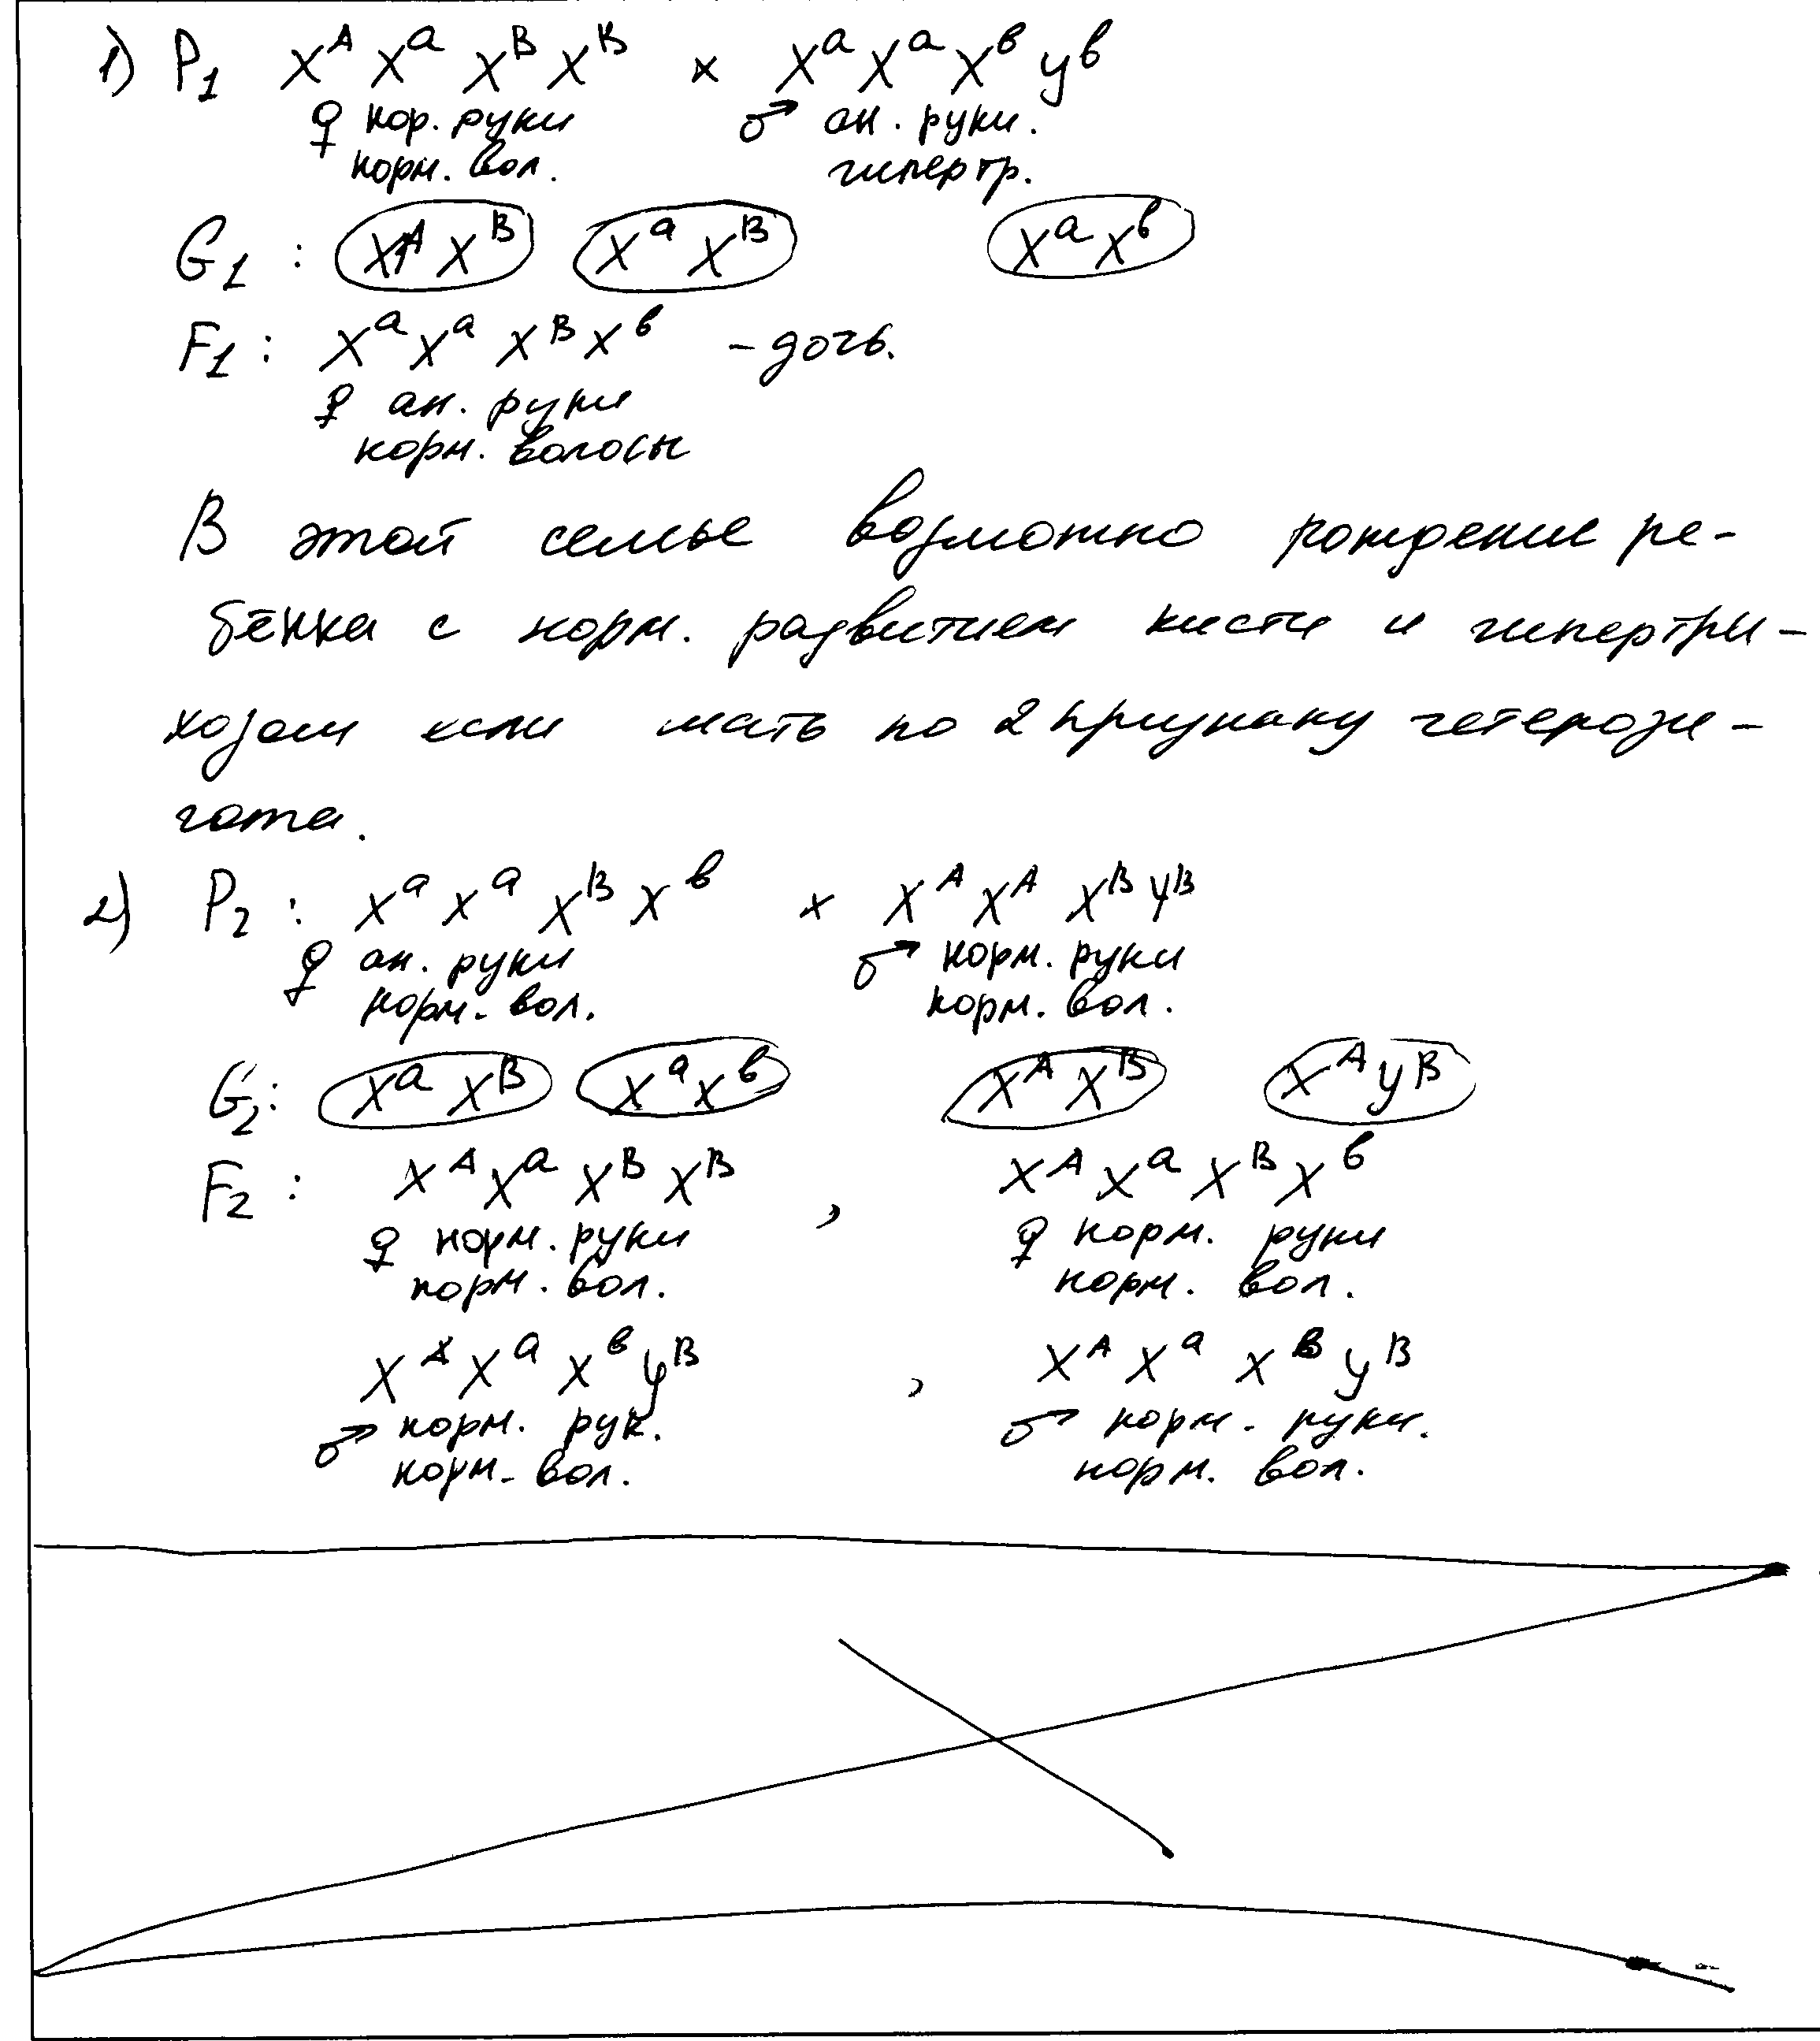 1) P₁ Xᴬ Xᵃ Xᴮ Xᴮ × Xᵃ Xᵃ Xᵇ yᵇ
♀ нор. руки ♂ ан. руки.
норм. вол. гипертр.
G₁ : Xᴬ Xᴮ Xᵃ Xᴮ Xᵃ Xᵇ
F₁ : Xᵃ Xᵃ Xᴮ Xᵇ – дочь.
♀ ан. руки
норм. волосы
В этой семье возможно рождение ре-
бёнка с норм. развитием кисти и гипертри-
хозом если мать по 2 признаку гетерози-
гота.
2) P₂ : Xᵃ Xᵃ Xᴮ Xᵇ × Xᴬ Xᴬ Xᴮ Yᴮ
♀ ан. руки ♂ норм. руки
норм. вол. норм. вол.
G₂: Xᵃ Xᴮ Xᵃ Xᵇ Xᴬ Xᴮ Xᴬ yᴮ
F₂ : Xᴬ Xᵃ Xᴮ Xᴮ , Xᴬ Xᵃ Xᴮ Xᵇ
♀ норм. руки ♀ норм. руки
норм. вол. норм. вол.
Xᴬ Xᵃ Xᵇ yᴮ , Xᴬ Xᵃ Xᴮ yᴮ
♂ норм. рук. ♂ норм. руки.
норм. вол. норм. вол.